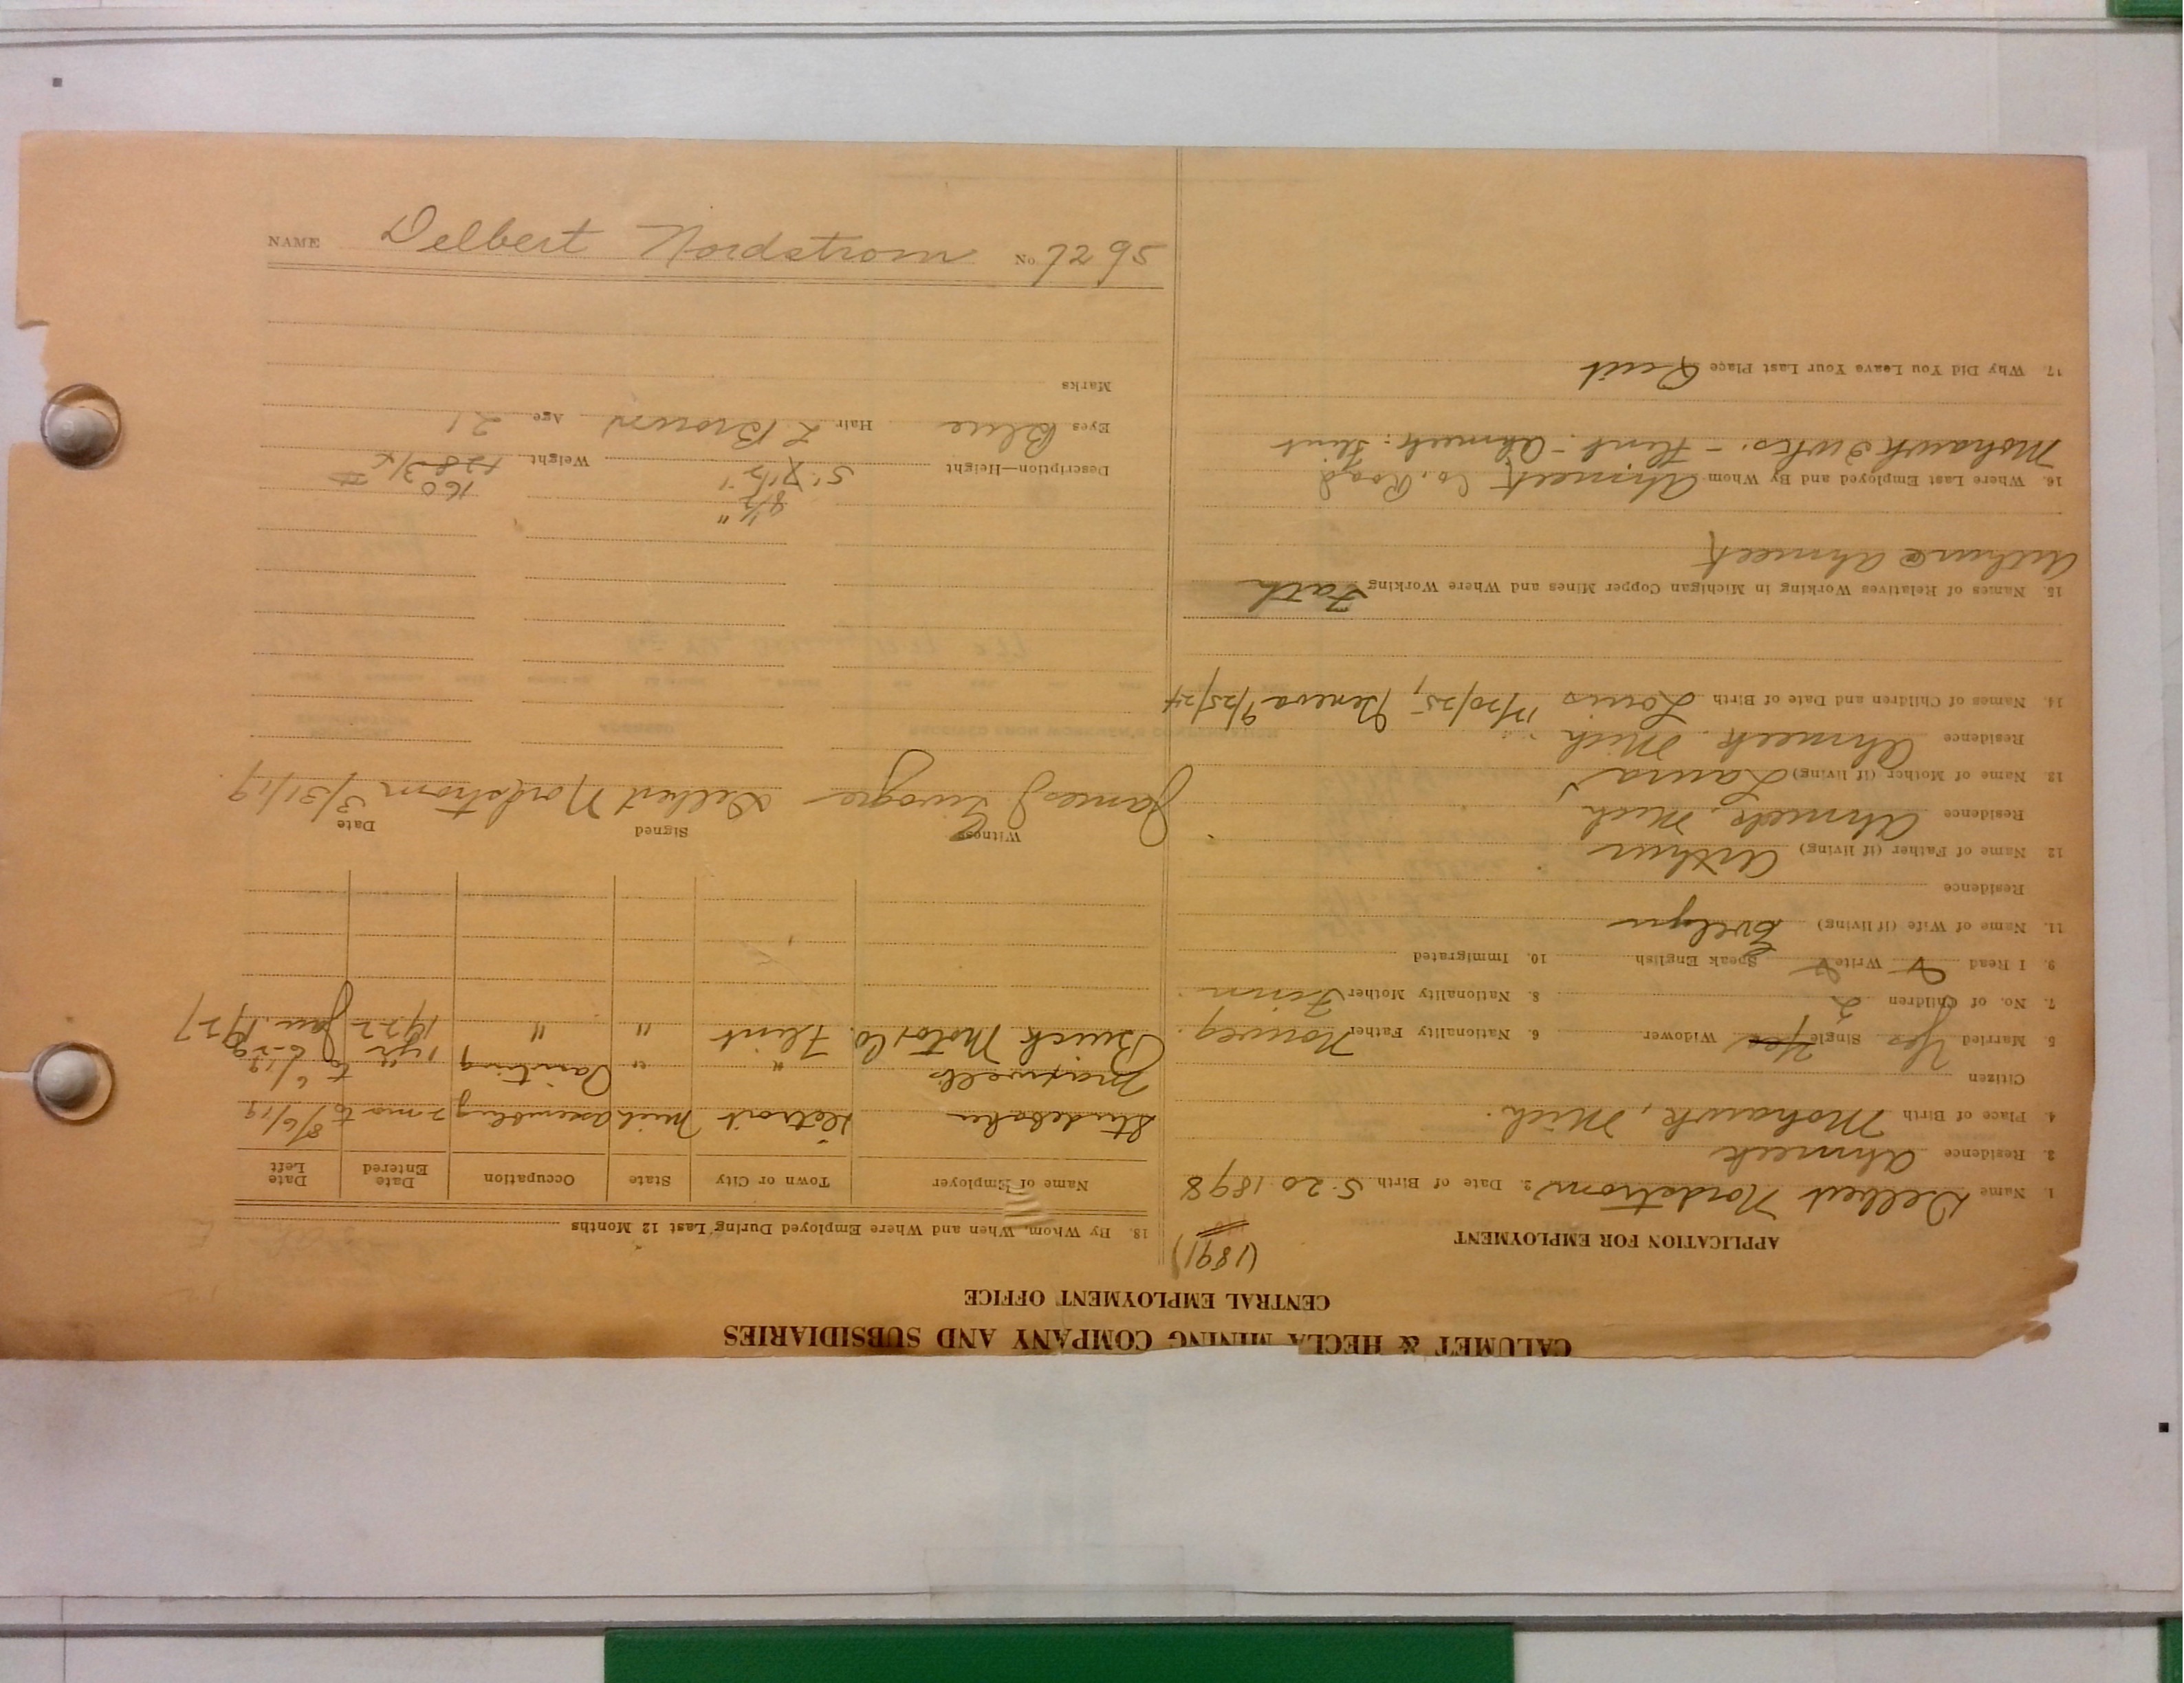 CALUMET & HECLA MINING COMPANY AND SUBSIDIARIES
CENTRAL EMPLOYMENT OFFICE
APPLICATION FOR EMPLOYMENT
(1891)
1. Name Delbert Nordstrom 2. Date of Birth 5-20-1898
3. Residence Ahmeek
4. Place of Birth Mohawk, Mich.
Citizen
5. Married Yes Single Yes Widower 6. Nationality Father Norweg.
7. No. of Children 2 8. Nationality Mother Finn
9. I Read Write Speak English 10. Immigrated
11. Name of Wife (if living) Evelyn
Residence
12. Name of Father (if living) Arthur
Residence Ahmeek, Mich
13. Name of Mother (if living) Laura
Residence Ahmeek, Mich
14. Names of Children and Date of Birth Louis /20/25, Geneva 9/25/24
15. Names of Relatives Working in Michigan Copper Mines and Where Working Fath
Arthur @ Ahmeek
16. Where Last Employed and By Whom Ahmeek Co. Road
Mohawk 3 wks. - Flint - Ahmeek - Flint
17. Why Did You Leave Your Last Place Quit
18. By Whom, When and Where Employed During Last 12 Months
Name of Employer Town or City State Occupation Date Entered Date Left
Studebaker Detroit Mich assembling 2 mo to 8/6/19
Maxwell " " Painting 1 yr to 6/19
Buick Motor Co. Flint " " 1922 Jan. 1927
Witness Signed Date
James Delbert Nordstrom 3/31/19
8 1/2 " 160
Description—Height 5' 7 1/2 Weight 128 3/4
Eyes Blue Hair L Brown Age 21
Marks
NAME Delbert Nordstrom No. 7295